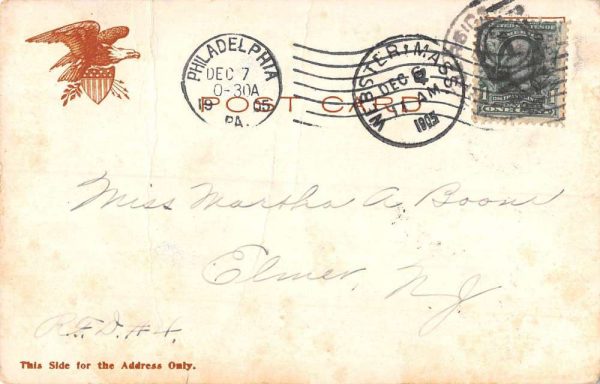 PHILADELPHIA
DEC 7
0-30A
1905
PA.
WEBSTER, MASS.
DEC 6
11 AM
1905
POST CARD
Miss Martha A Boone
Elmer, N.J.
R.F.D. #4.
This Side for the Address Only.